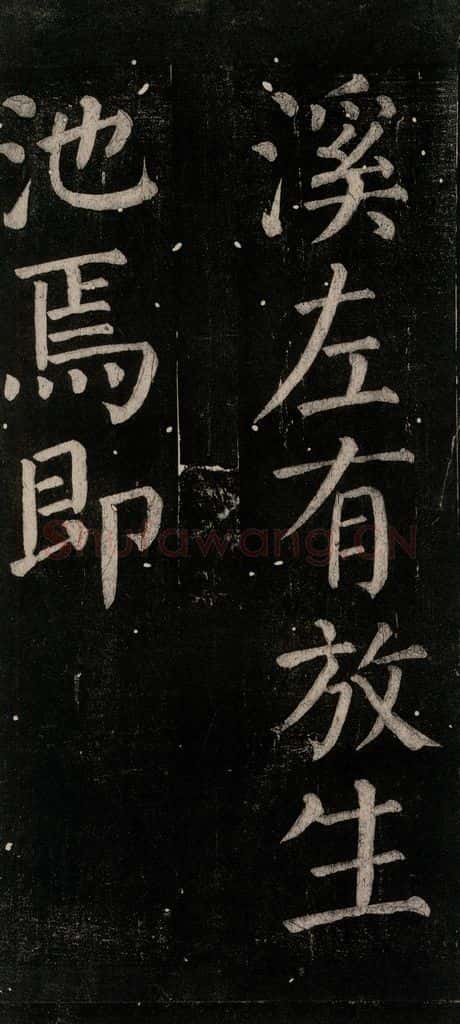 溪左有放生
池焉即
Shufawang.CN